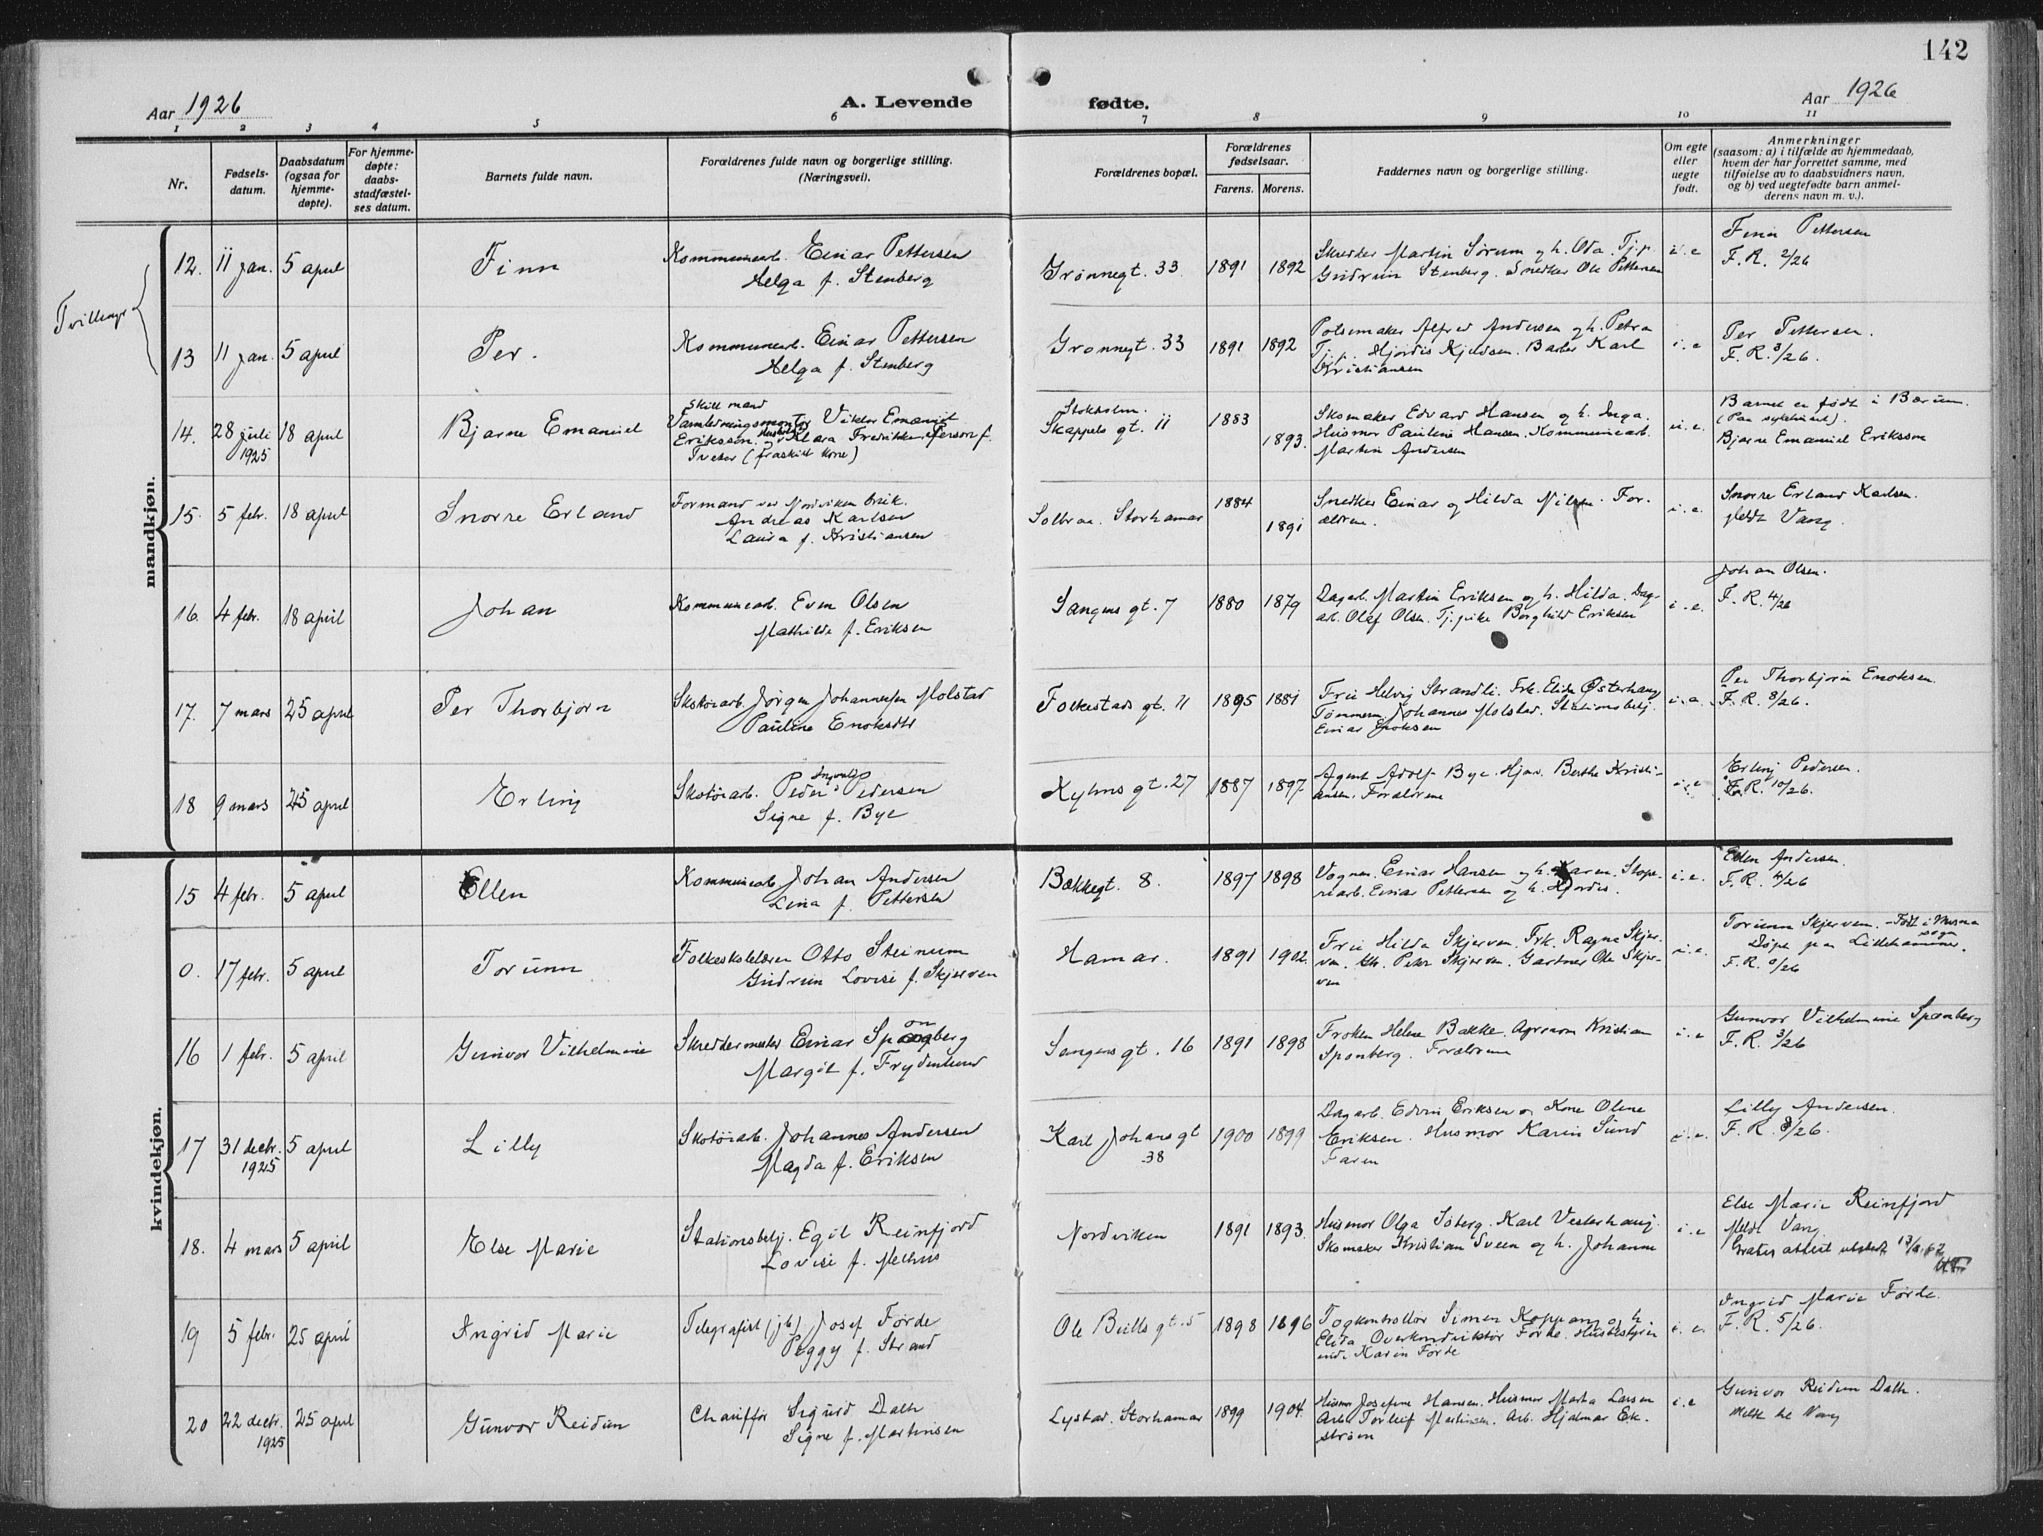 142
Aar 1926
A. Levende
fødte.
Aar 1926
1 2 3 4 5 6 7 8 9 10 11
Nr.
Fødsels-
datum.
Daabsdatum
(ogsaa for
hjemme-
døpte).
For hjemme-
døpte:
daabs-
stadfæstel-
ses datum.
Barnets fulde navn.
Forældrenes fulde navn og borgerlige stilling.
(Næringsvei).
Forældrenes bopæl.
Forældrenes
fødselsaar.
Farens. Morens.
Faddernes navn og borgerlige stilling.
Om egte
eller
uegte
født.
Anmerkninger
(saasom: a) i tilfælde av hjemmedaab,
hvem der har forrettet samme, med
tilføielse av to daabsvidners navn,
og b) ved uegtefødte barn anmel-
derens navn m. v.).
mandkjøn.
Tvillinger
12. 11 jan. 5 april Finn
Kommunearb. Einar Pettersen
Helga f. Stenberg
Grønnegt. 33. 1891 1892
Skredder Martin Sørum og h. Oda. Tj.p.
Gudrun Stenberg. Snedker Ole Pettersen
i. e
Finn Pettersen
F. R. 2/26
13 11 jan. 5 april Per.
Kommunearb. Einar Pettersen
Helga f. Stenberg
Grønnegt. 33 1891 1892
Pølsemaker Alfred Andersen og h. Petra
Tj.p. Hjørdis Kjeldsen. Barber Karl
Kristiansen
i. e
Per Pettersen.
F. R. 3/26.
14. 28 juli 1925 18 april Bjarne Emanuel
Skilt mand
Vandledningsmontør Viktor Emanuel
Eriksson. og Klara Fredrikke Iverson f.
Tveter (fraskilt kone)
Stokholm.
Skappels gt. 11 1883 1893.
Skomaker Edvard Hansen og h. Inga.
Husmor Pauline Hansen. Kommunearb.
Martin Andersen
u. e.
Barnet er født i Bærum.
Bjarne Emanuel Eriksson
15. 5 febr. 18 april Snorre Erland
Formand ved Nordviken bruk.
Andreas Karlsen
Laura f. Kristiansen
Solbraa. Storhamar 1884 1891
Snedker Einar og Hilda Nilsen. For-
ældrene.
i. e.
Snorre Erland Karlsen.
Meldt Vang.
16. 4 febr. 18 april Johan
Kommunearb. Even Olsen
Mathilde f. Eriksen
Sangens gt. 7 1880 1879
Dagarb. Martin Eriksen og h. Hilda. Dag-
arb. Olaf Olsen. Tj.pike Borghild Eriksen
i. e.
Johan Olsen.
F. R. 4/26
17. 7 mars 25 april Per Thorbjørn
Skotøiarb. Jørgen Johannessen Molstad
Pauline Enoksdtr
Folkestads gt. 11 1895 1881
Fru Helvig Strandli. Frk. Elida Østerhaug
Tømmerm. Johannes Molstad. Stationsbetj.
Einar Enoksen
Per Thorbjørn Enoksen.
F. R. 8/26.
18 9 mars 25 april Erling
Skotøiarb. Peder Ingvald Pedersen
Signe f. Bye
Kyhns gt. 27 1887 1897
Agent Adolf Bye. Hjav. Berthe Kristi-
ansen. Forældrene
i. e
Erling Pedersen.
F. R. 10/26.
kvindekjøn.
15 4 febr. 5 april Ellen
Kommunearb Johan Andersen
Lina f. Pettersen
Bækkegt. 8. 1897 1898
Vognm. Einar Hansen og h. Karen. Støpe-
riarb. Einar Pettersen og h. Hjørdis.
i. e.
Ellen Andersen.
F. R. 4/26
0. 17 febr. 5 april Torunn
Folkeskolelærer Otto Steinum
Gudrun Lovise f. Skjerven
Hamar. 1891 1902.
Fru Hilda Skjerven. Frk. Ragna Skjer-
ven. Peter Skjerven. Gartner Ole Skjer-
ven
Torunn Skjerven. Født i
Døpe paa Lillehammer.
F. R. 0/26
16 1 febr. 5 april Gunvor Vilhelmine
Skreddermester Einar Sponberg
Margit f. Frydenlund
Sangens gt. 16 1891 1898
Frøken Helene Bakke. Agronom Kristian
Sponberg. Forældrene
i. e
Gunvor Vilhelmine Sponberg
F. R. 3/26
17 31 decbr. 1925 5 april Lilly
Skotøiarb. Johannes Andersen
Magda f. Eriksen
Karl Johans gt 38 1900 1899
Dagarb. Edvin Eriksen og Kone Oline
Eriksen. Husmor Karen Sund
Faren
Lilly Andersen.
F. R. 8/26.
18. 4 mars 5 april Else Marie
Stationsbetj. Egil Reinfjord
Lovise f. Melhus
Nordviken 1891 1893.
Husmor Olga Søberg. Karl Vesterhaug.
Skomaker Kristian Sveen og h. Johanne
i. e
Else Marie Reinfjord
Meldt Vang
Gratis attest utstedt
19 5 febr. 25 april Ingrid Marie
Telegrafist (jb) Josef Førde
Peggy f. Strand
Ole Bulls gt. 5 1898 1896
Togkontrollør Simen Koppang og h.
Elida. Overkonduktør Førde. Husbestyrer-
inde Karin Førde
Ingrid Marie Førde.
F. R. 5/26.
20 22 decbr. 1925 25 april Gunvor Reidun
Chauffør Sigurd Dalh
Signe f. Martinsen
Lystad. Storhamar 1899 1904.
Husmor Josefine Hansen. Husmor Marta Larsen
Arb. Torleif Martinsen. Arb. Hjalmar Ek-
strøm
i. e
Gunvor Reidun Dalh.
Meldt til Vang